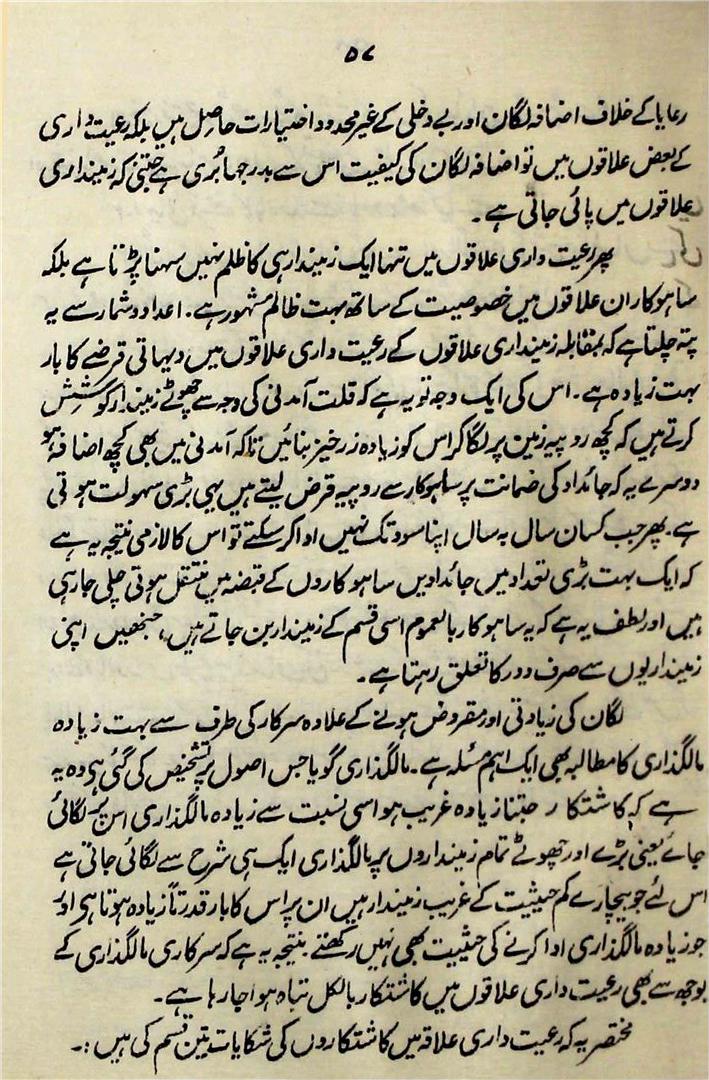 ۵۷
رعایا کے خلاف اضافہ لگان اور بے دخلی کے غیر محدود اختیارات حاصل ہیں بلکہ رعیت داری
کے بعض علاقوں میں تو اضافہ لگان کی کیفیت اس سے بدرجہا بُری ہے جتنی کہ زمینداری
علاقوں میں پائی جاتی ہے۔
پھر رعیت داری علاقوں میں تنہا ایک زمیندار ہی کا ظلم نہیں سہنا پڑتا ہے بلکہ
ساہوکار ان علاقوں میں خصوصیت کے ساتھ بہت ظالم مشہور ہے۔ اعداد و شمار سے یہ
پتہ چلتا ہے کہ بمقابلہ زمینداری علاقوں کے رعیت داری علاقوں میں دیہاتی قرضے کا بار
بہت زیادہ ہے۔ اس کی ایک وجہ تو یہ ہے کہ قلت آمدنی کی وجہ سے چھوٹے زمیندار کوشش
کرتے ہیں کہ کچھ روپیہ زمین پر لگا کر اس کو زیادہ زرخیز بنائیں تاکہ آمدنی میں بھی کچھ اضافہ ہو
دوسرے یہ کہ جائداد کی ضمانت پر ساہوکار سے روپیہ قرض لیتے ہیں یہی بڑی سہولت ہوتی
ہے۔ پھر جب کسان سال بہ سال اپنا سود تک نہیں ادا کر سکتے تو اس کا لازمی نتیجہ یہ ہے
کہ ایک بہت بڑی تعداد میں جائدادیں ساہوکاروں کے قبضہ میں منتقل ہوتی چلی جا رہی
ہیں اور لطف یہ ہے کہ یہ ساہوکار بالعموم اسی قسم کے زمیندار بن جاتے ہیں، جنھیں اپنی
زمینداریوں سے صرف دور کا تعلق رہتا ہے۔
لگان کی زیادتی اور مقروض ہونے کے علاوہ سرکار کی طرف سے بہت زیادہ
مالگذاری کا مطالبہ بھی ایک اہم مسئلہ ہے۔ مالگذاری گویا جس اصول پر تشخیص کی گئی ہی وہ یہ
ہے کہ کاشتکار جتنا زیادہ غریب ہو اسی نسبت سے زیادہ مالگذاری اس پر لگائی
جائے یعنی بڑے اور چھوٹے تمام زمینداروں پر مالگذاری ایک ہی شرح سے لگائی جاتی ہے
اس لئے جو بیچارے کم حیثیت کے غریب زمیندار ہیں ان پر اس کا بار قدرتاً زیادہ ہوتا ہی اور
جو زیادہ مالگذاری ادا کرنے کی حیثیت بھی نہیں رکھتے۔ نتیجہ یہ ہے کہ سرکاری مالگذاری کے
بوجھ سے بھی رعیت داری علاقوں میں کاشتکار بالکل تباہ ہوا جا رہا ہے۔
مختصر یہ کہ رعیت داری علاقہ میں کاشتکاروں کی شکایات تین قسم کی ہیں :۔